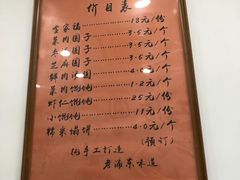 价目表
全家福 18元/份
菜肉团子 3.5元/个
枣泥团子 3.5元/个
芝麻团子 3.5元/个
鲜肉团 4.0元/个
菜肉馄饨 1.2元/个
虾仁馄饨 25元/份
小馄饨 11元/份
糯米塌饼 4.0元/个
(预订)
纯手工打造
老浦东味道